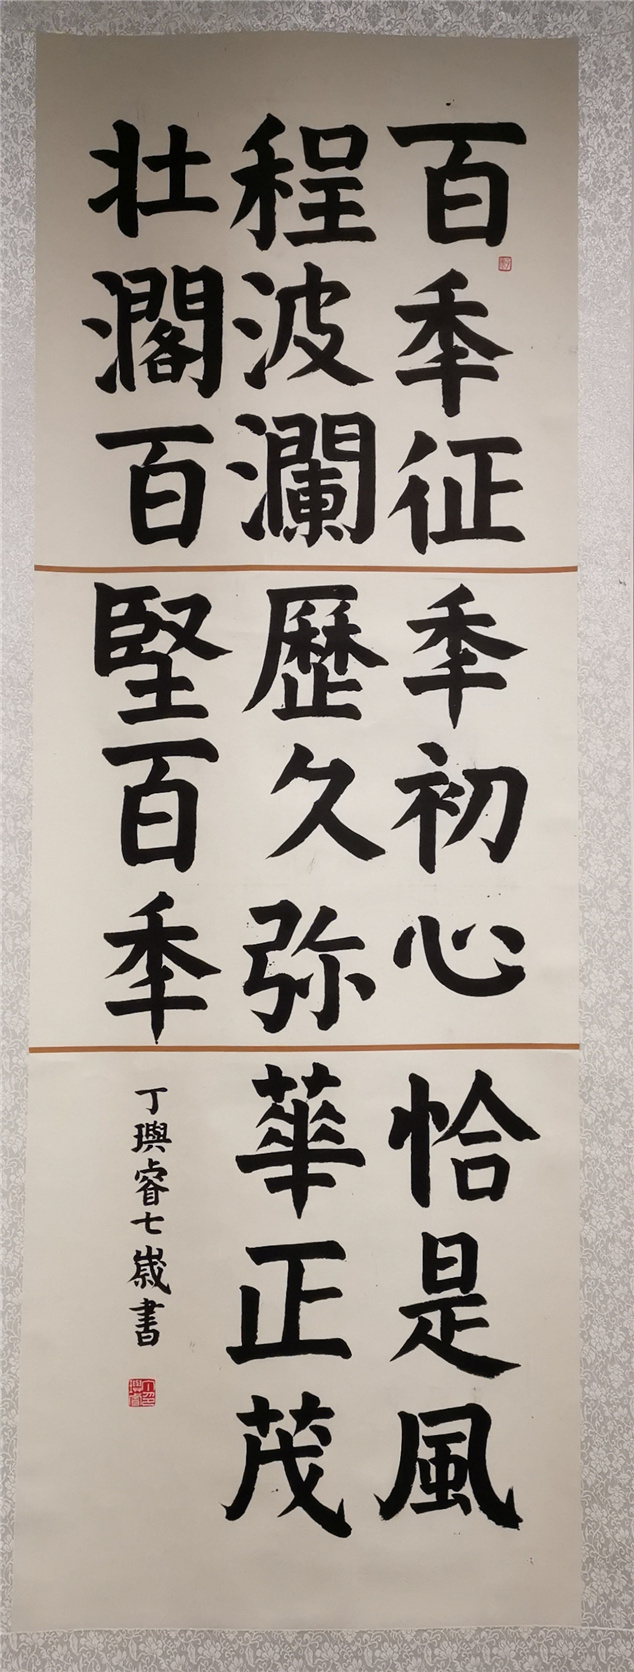 百秊征
程波瀾
壮濶百
秊初心
歷久弥
堅百秊
恰是風
華正茂
丁璵睿七歲書